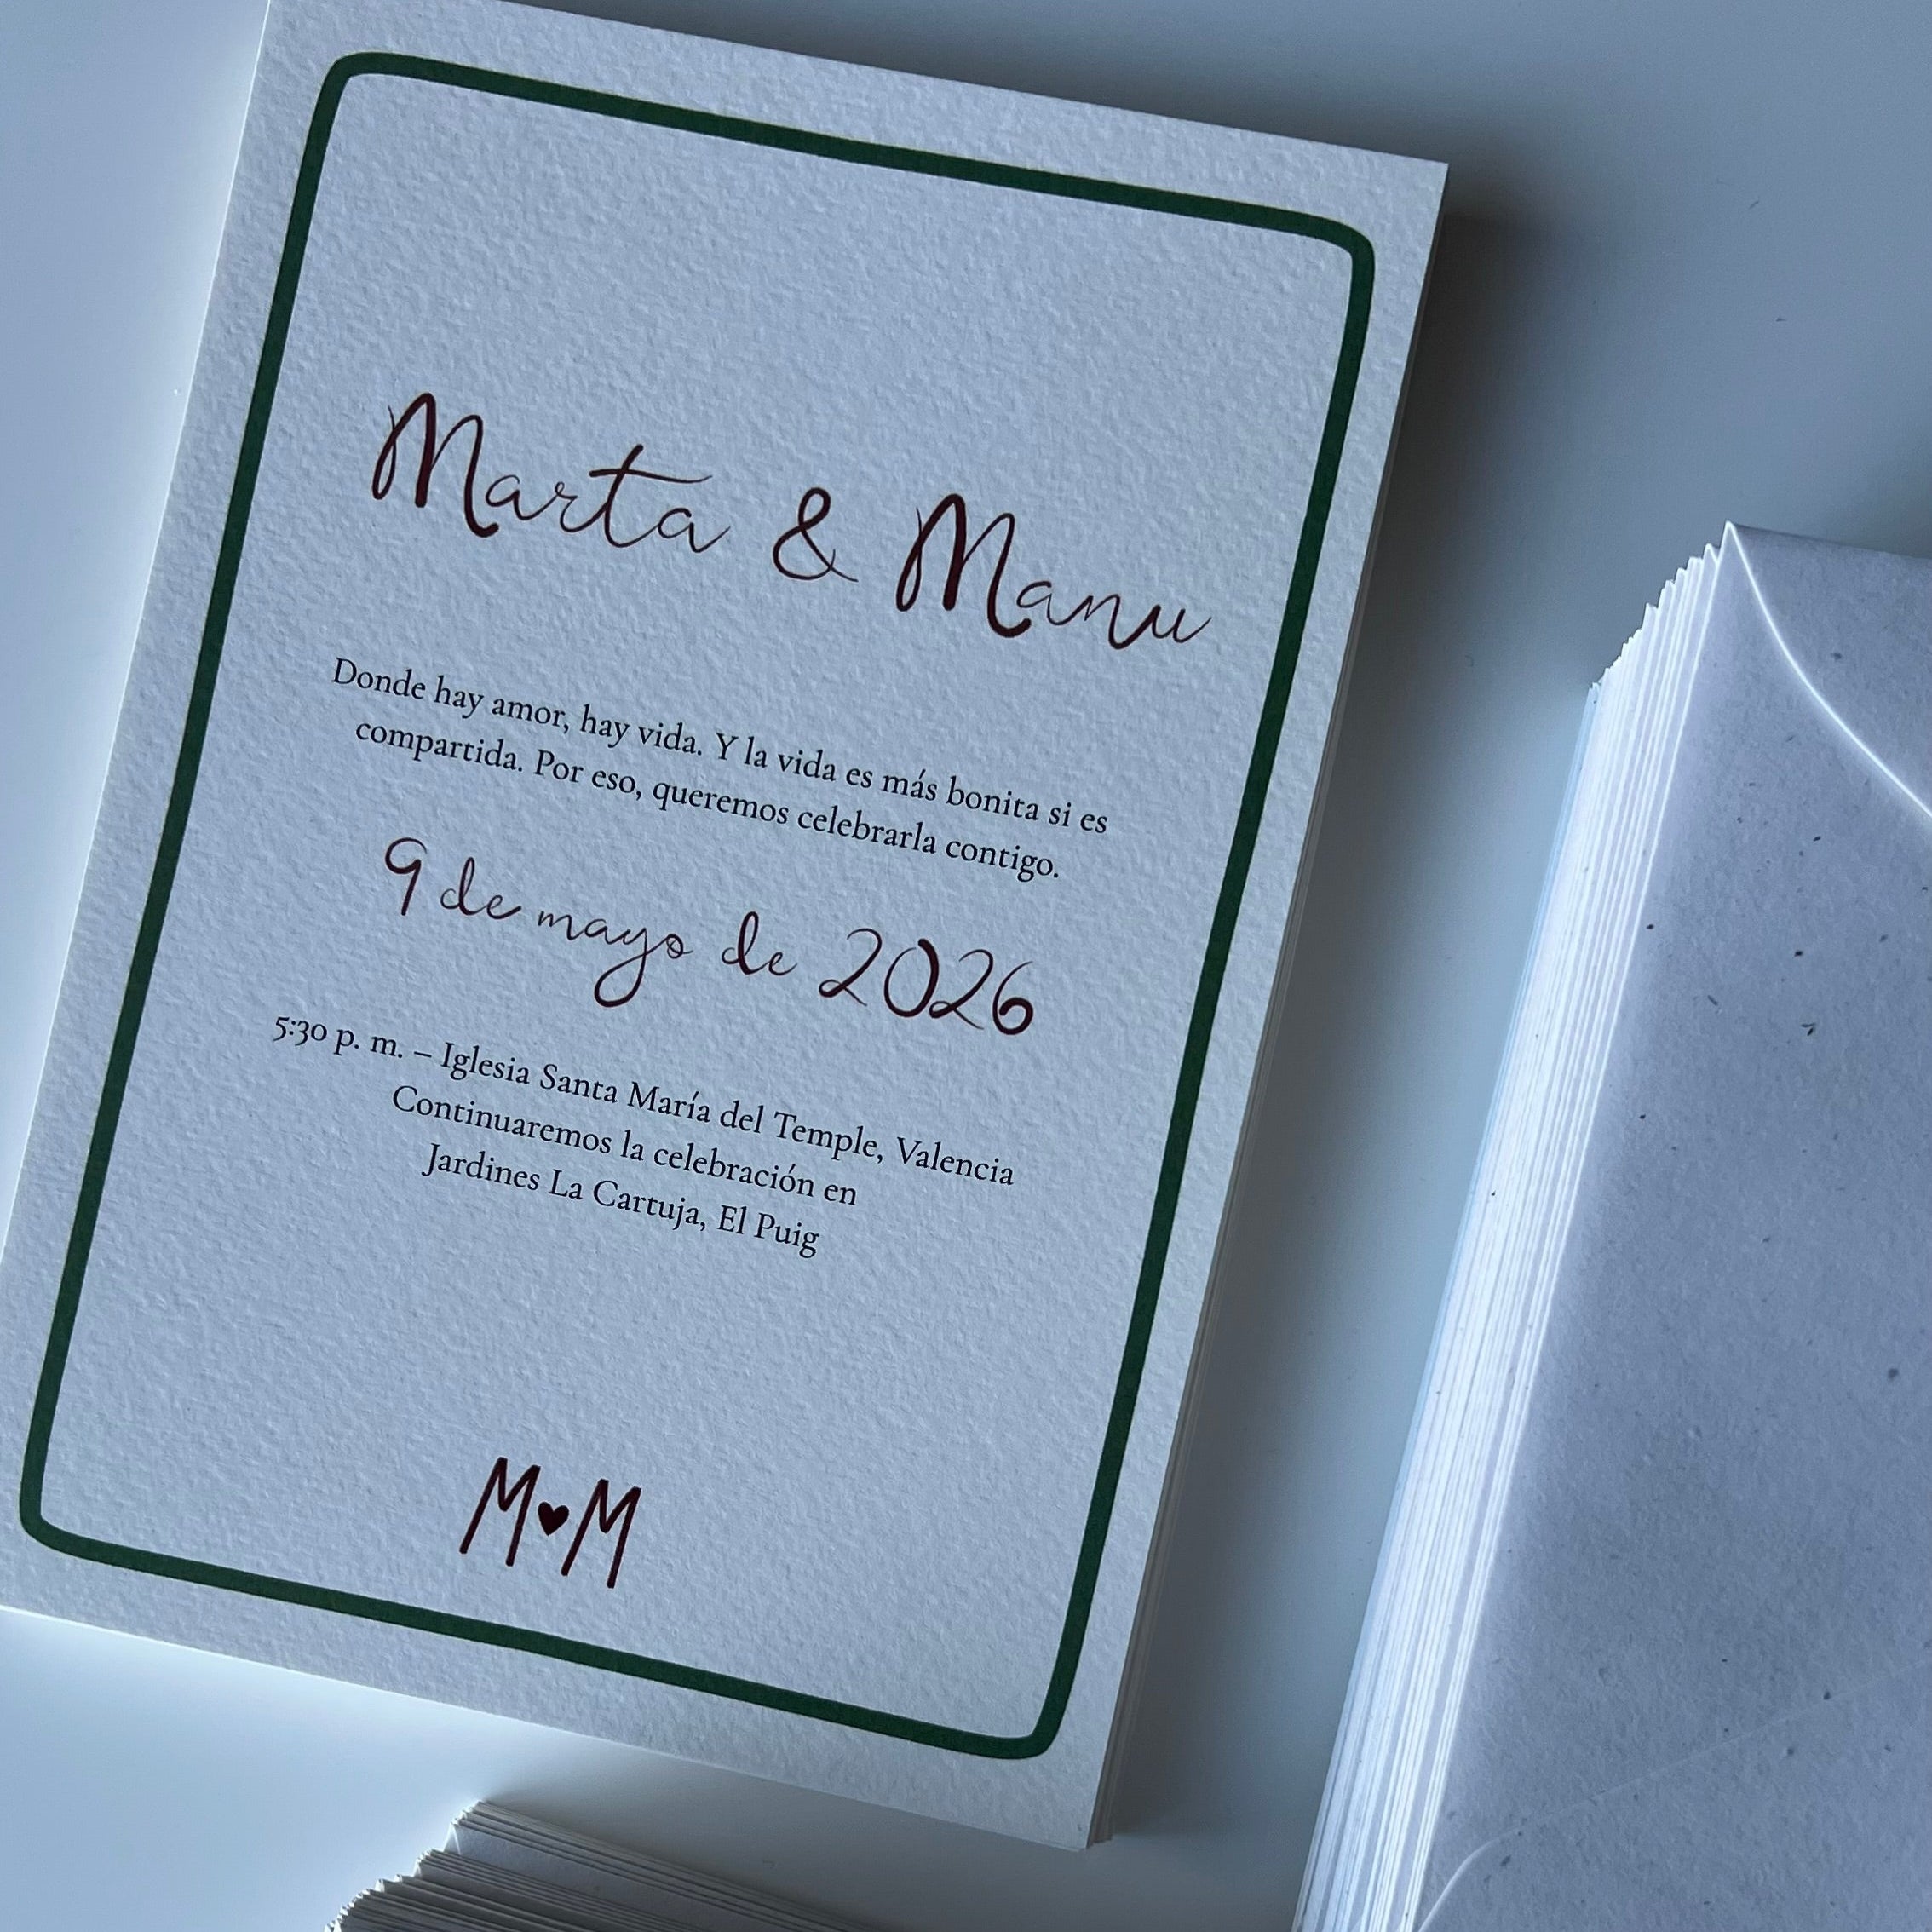 Marta & Manu
Donde hay amor, hay vida. Y la vida es más bonita si es
compartida. Por eso, queremos celebrarla contigo.
9 de mayo de 2026
5:30 p. m. – Iglesia Santa María del Temple, Valencia
Continuaremos la celebración en
Jardines La Cartuja, El Puig
M♥M